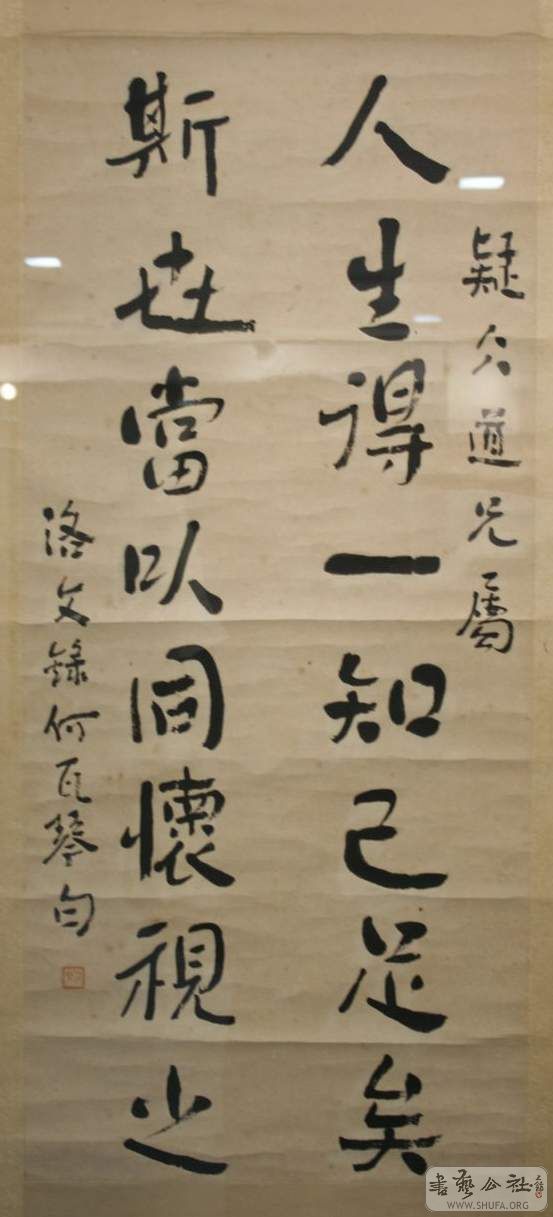 疑仌道兄属
人生得一知己足矣
斯世當以同懷視之
洛文錄何瓦琴句
書藝公社
WWW.SHUFA.ORG